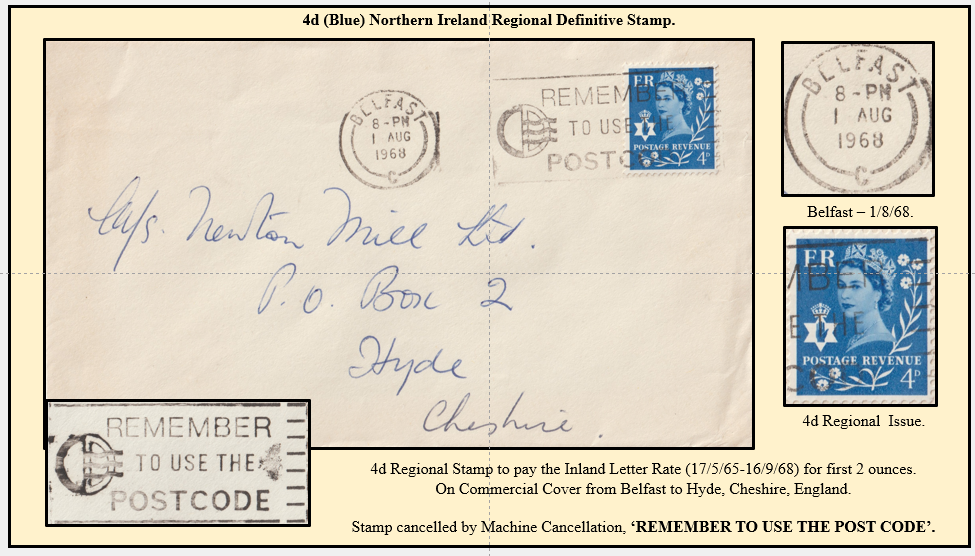 4d (Blue) Northern Ireland Regional Definitive Stamp.
BELFAST
8-PM
1 AUG
1968
C
REMEMB
TO USE THE
POSTCO
E R
POSTAGE REVENUE
4D
M/s. Newton Mill Ltd.
P.O. Box 2
Hyde
Cheshire.
BELFAST
8-PM
1 AUG
1968
C
Belfast – 1/8/68.
E R
MBER
E THE
POSTAGE REVENUE
4D
4d Regional Issue.
REMEMBER
TO USE THE
POSTCODE
4d Regional Stamp to pay the Inland Letter Rate (17/5/65-16/9/68) for first 2 ounces.
On Commercial Cover from Belfast to Hyde, Cheshire, England.
Stamp cancelled by Machine Cancellation, ‘REMEMBER TO USE THE POST CODE’.